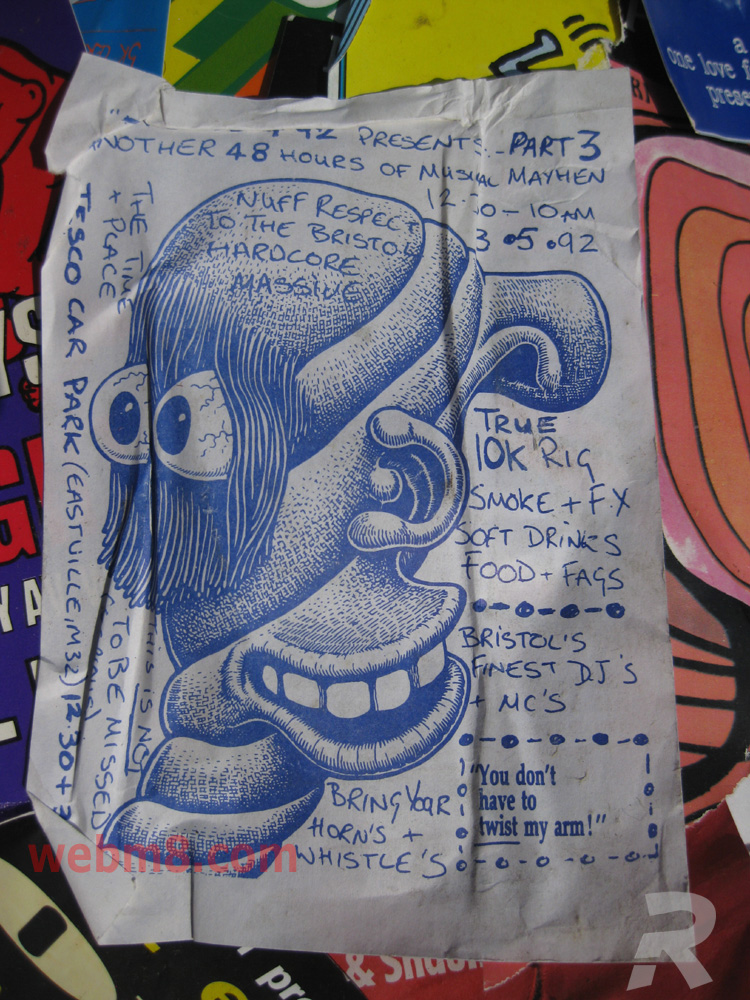 92 PRESENTS... PART 3
ANOTHER 48 HOURS OF MUSICAL MAYHEN
10 - 10 AM
3.5.92
NUFF RESPECT
TO THE BRISTOL
HARDCORE
MASSIVE
THE TIME
+ PLACE
TESCO CAR PARK (EASTVILLE, M32) 12.30 +
THIS IS NOT
TO BE MISSED
TRUE
10K RIG
SMOKE + F.X
SOFT DRINKS
FOOD + FAGS
BRISTOL'S
FINEST DJ'S
+ MC'S
"You don't
have to
twist my arm!"
BRING YOUR
HORN'S +
WHISTLE'S
webm8.com
R
a
one love
prese
pro
& Shad